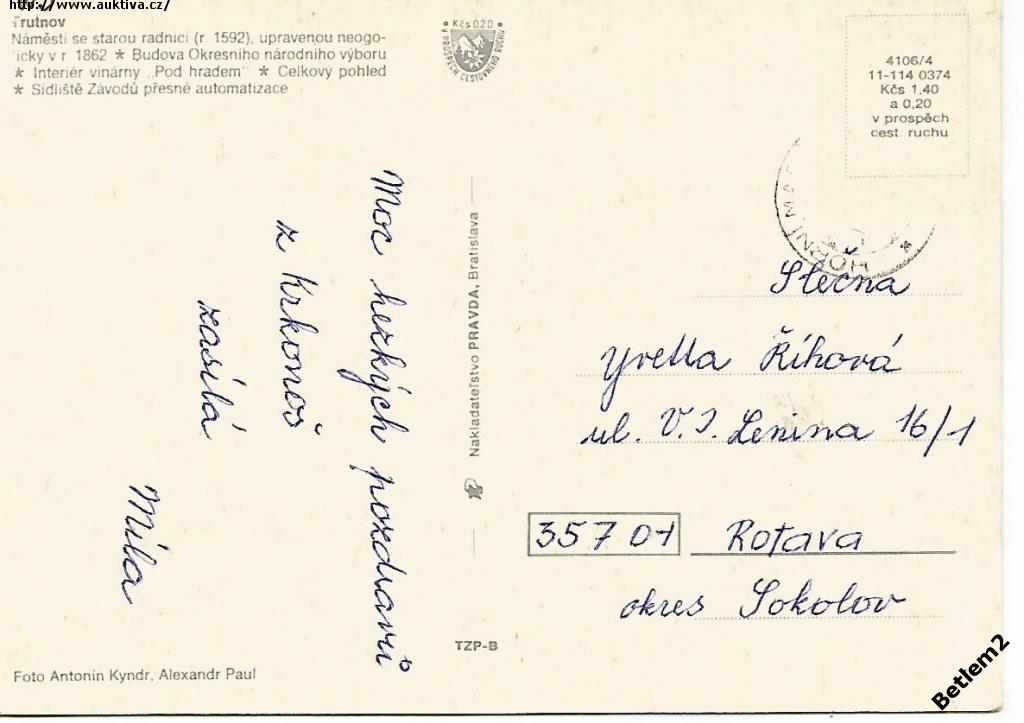 http://www.auktiva.cz/
Trutnov
Náměstí se starou radnicí (r. 1592), upravenou neogo-
ticky v r. 1862 * Budova Okresního národního výboru
* Interiér vinárny „Pod hradem" * Celkový pohled
* Sídliště Závodů přesné automatizace
• Kčs 0.20 •
V PROSPĚCH CESTOVNÍHO RUCHU
4106/4
11-114 0374
Kčs 1,40
a 0,20
v prospěch
cest. ruchu
HORNÍ MAR
Moc hezkých pozdravů
z Krkonoš
zasílá
Míla
Nakladateľstvo PRAVDA, Bratislava
Slečna
Yvetta Říhová
ul. V. I. Lenina 16/1
357 01 Rotava
okres Sokolov
TZP-B
Foto Antonín Kyndr, Alexandr Paul
Betlem2